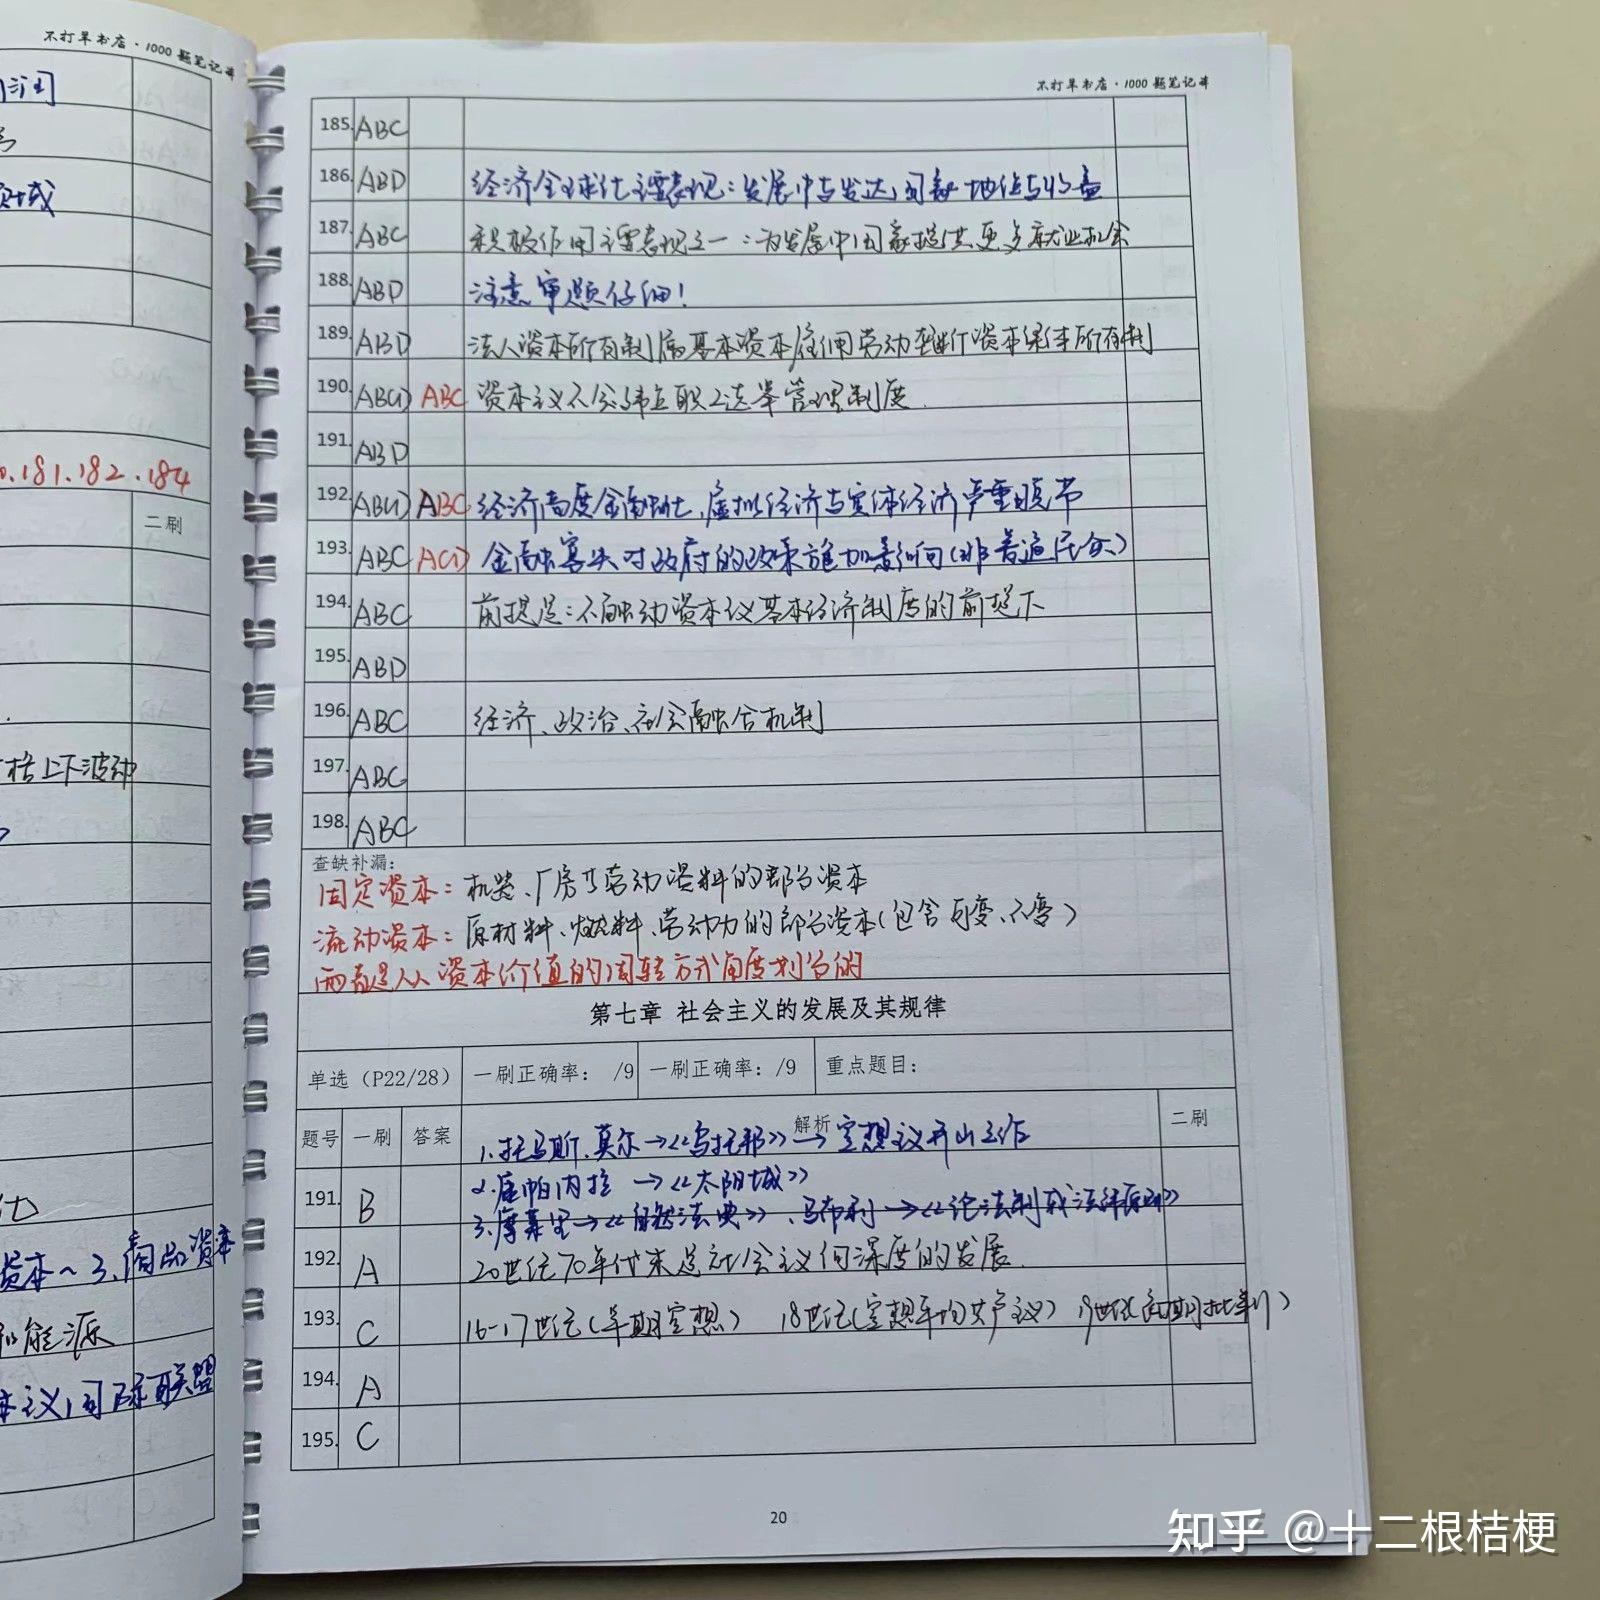 不打草书店·1000题笔记本
181.182.184
二刷
格上下波动
资本~3.商品资本
和能源
本主义国际联盟
不打草书店·1000题笔记本
185. ABC
186. ABD 经济全球化主要表现:发展中与发达国家地位与收益
187. ABC 积极作用主要表现之一:为发展中国家提供更多就业机会
188. ABD 注意审题仔细!
189. ABD 法人资本所有制属基本资本雇佣劳动进行资本所有制
190. ABCD ABC 资本主义不会确立职工选举管理制度
191. ABD
192. ABCD ABC 经济高度金融化,虚拟经济与实体经济严重脱节
193. ABC ACD 金融寡头对政府的政策施加影响(非普通民众)
194. ABC 前提是:不触动资本主义基本经济制度的前提下
195. ABD
196. ABC 经济、政治、社会融合机制
197. ABC
198. ABC
查缺补漏:
固定资本:机器、厂房等劳动资料的部分资本
流动资本:原材料、燃料、劳动力的部分资本(包含可变、不变)
两者是从资本价值的周转方式角度划分的
第七章 社会主义的发展及其规律
单选(P22/28) 一刷正确率: /9 一刷正确率: /9 重点题目:
题号 一刷 答案 解析 二刷
1.托马斯.莫尔→《乌托邦》→空想主义开山之作
2.康帕内拉→《太阳城》
191. B
3.摩莱里→《自然法典》、马布利→《论法制或法律原则》
192. A 20世纪70年代末是社会主义向深度的发展.
193. C 16-17世纪(早期空想) 18世纪(空想平均共产主义) 19世纪(空想批判)
194. A
195. C
20
知乎 @十二根桔梗